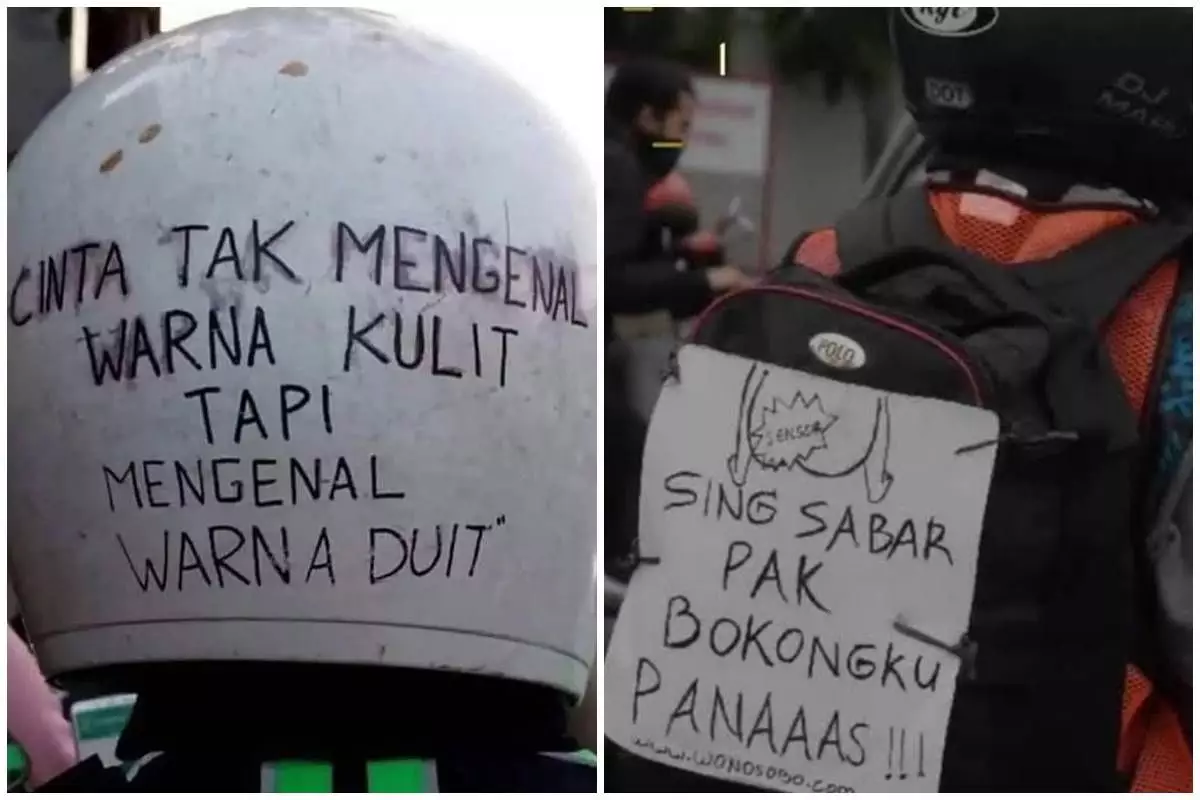 CINTA TAK MENGENAL
WARNA KULIT
TAPI
MENGENAL
WARNA DUIT"
Kyt
DOT
DJ
POLO
SENSOR
SING SABAR
PAK
BOKONGKU
PANAAAS !!!
www.wonosobo.com